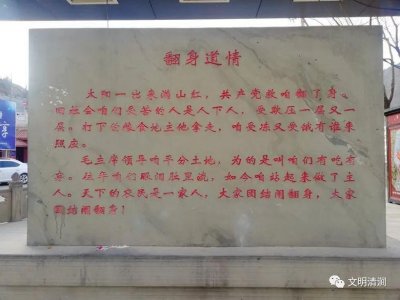 翻身道情
太阳一出来满山红，共产党救咱翻了身。
旧社会咱们受苦的人是人下人，受欺压一层又一
层。打下的粮食地主他拿走，咱受冻又受饿有谁来
照应。
毛主席领导咱平分土地，为的是叫咱们有吃有
穿。往年咱们眼泪肚里流，如今咱站起来做了主
人。天下的农民是一家人，大家团结闹翻身，大家
团结闹翻身！
享
文明清涧